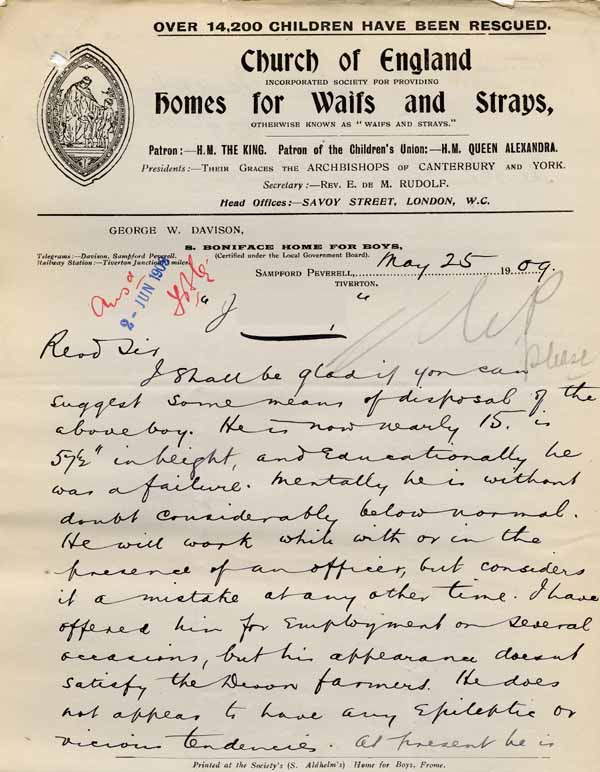 OVER 14,200 CHILDREN HAVE BEEN RESCUED.
Church of England
INCORPORATED SOCIETY FOR PROVIDING
Homes for Waifs and Strays,
OTHERWISE KNOWN AS "WAIFS AND STRAYS."
Patron:—H.M. THE KING. Patron of the Children's Union:—H.M. QUEEN ALEXANDRA.
Presidents:—THEIR GRACES THE ARCHBISHOPS OF CANTERBURY AND YORK.
Secretary:—REV. E. DE M. RUDOLF.
Head Offices:—SAVOY STREET, LONDON, W.C.
GEORGE W. DAVISON,
S. BONIFACE HOME FOR BOYS,
Telegrams:—Davison, Sampford Peverell. (Certified under the Local Government Board).
Railway Station:—Tiverton Junction miles.
SAMPFORD PEVERELL, May 25 1909.
TIVERTON.
Ansd
2-JUN 1909
"J "
please
Revd Sir
I shall be glad if you can
suggest some means of disposal of the
above boy. He is now nearly 15. is
57½" in height, and Educationally he
was a failure. Mentally he is without
doubt considerably below normal.
He will work while with or in the
presence of an officer, but considers
it a mistake at any other time. I have
offered him for Employment on several
occasions, but his appearance doesnt
satisfy the Devon farmers. He does
not appear to have any Epileptic or
vicious tendencies. At present he is
Printed at the Society's (S. Aldhelm's) Home for Boys, Frome.